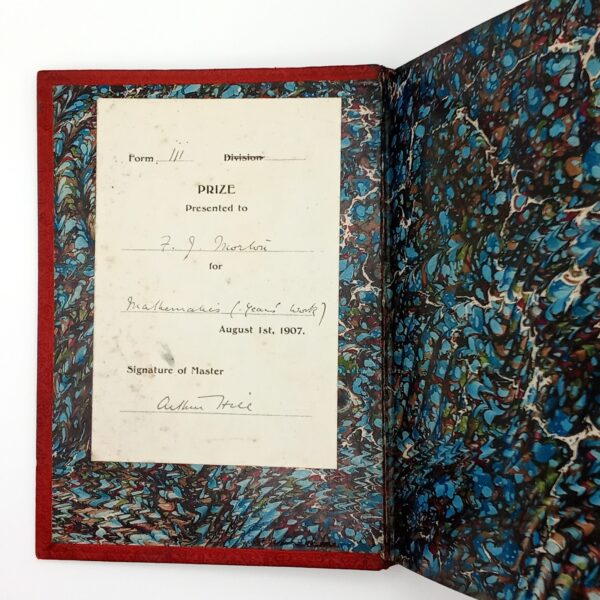 Form III Division
PRIZE
Presented to
F. J. Morton
for
Mathematics (Years' Work)
August 1st, 1907.
Signature of Master
Arthur Hill